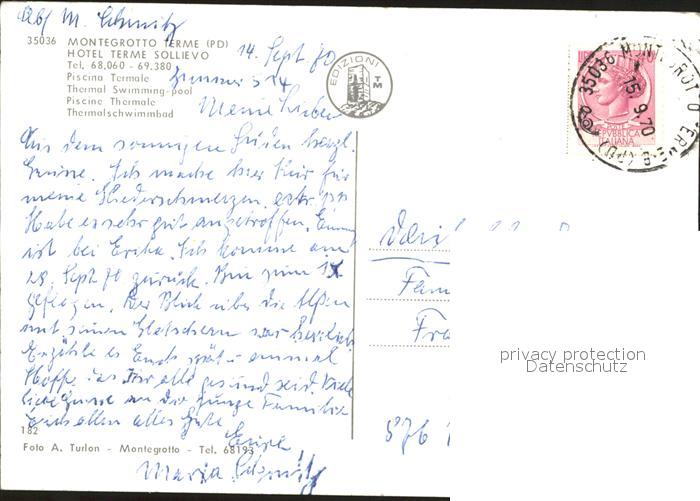 Abs M. Schmitz
35036 MONTEGROTTO TERME (PD)
HOTEL TERME SOLLIEVO
Tel. 68.060 - 69.380
Piscina Termale
Thermal Swimming-pool
Piscine Thermale
Thermalschwimmbad
14. Sept 70
Zimmer 514
Meine Lieben
Aus dem sonnigen Süden herzl.
Grüsse. Ich mache hier Kur für
meine Gliederschmerzen,
Habe es sehr gut angetroffen.
ist bei Erika. Ich komme am
28. Sept 70 zurück. Bin zum
geflogen. Der Blick über die Alpen
mit seinen Gletschern war herrlich
Erzähle es Euch später einmal
Hoffe, das Ihr alle gesund seid. Viele
liebe Grüsse an die junge Familie
Euch allen alles Gute
Eure
Maria Schmitz
182
Foto A. Turlon - Montegrotto - Tel. 68193
EDIZIONI
TM
REPUBBLICA
ITALIANA
35036 MONTEGROTTO TERME (PD)
15.9.70
Fam
576
privacy protection
Datenschutz